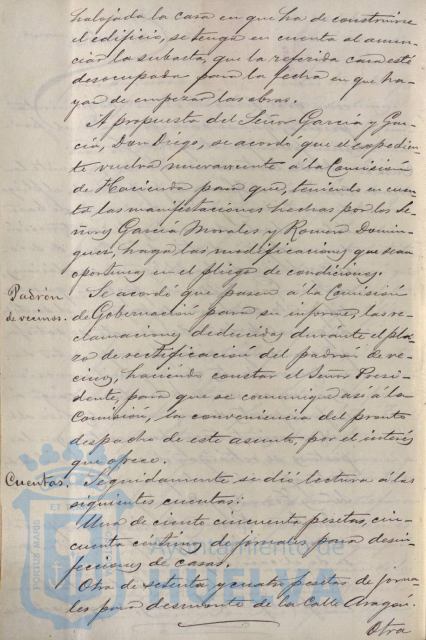 balojada la casa en que ha de construirse
el edificio, se tenga en cuenta al anun-
ciar la subasta, que la referida casa esté
desocupada para la fecha en que ha-
yan de empezar las obras.
A propuesta del Señor García y Gar-
cía, Don Diego, se acordó que el expedien-
te vuelva nuevamente á la Comisión
de Hacienda para que, teniendo en cuen-
ta las manifestaciones hechas por los Se-
ñores García Morales y Romero Domin-
guez, haga las modificaciones que sean
oportunas en el pliego de condiciones.
Padrón
de vecinos.
Se acordó que pasen á la Comisión
de Gobernación para su informe, las re-
clamaciones deducidas durante el pla-
zo de rectificación del padrón de ve-
cinos, haciendo constar el Señor Presi-
dente, para que se comunique así á la
Comisión, la conveniencia del pronto
despacho de este asunto, por el interés
que ofrece.
Cuentas.
Seguidamente se dió lectura á las
siguientes cuentas:
Una de ciento cincuenta pesetas, cin-
cuenta céntimos de jornales para desin-
fecciones de casas.
Otra de setenta y cuatro pesetas de jorna-
les para desmonte de la Calle Aragón.
Otra
PORTUS MARIS
ET
Ayuntamiento de
HUELVA